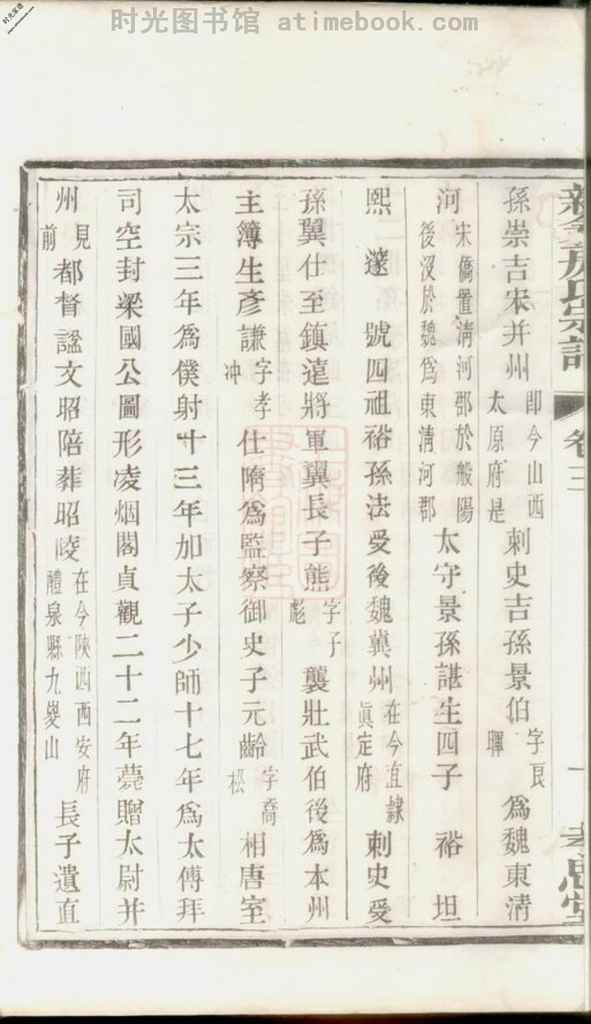 时光图书馆 atimebook.com
卷三
一
孫崇吉宋并州即今山西太原府是刺史吉孫景伯字良暉為魏東清
河宋僑置清河郡於般陽後沒於魏為東清河郡太守景孫諶生四子 裕 坦
熙 邃 號四祖裕孫法受後魏冀州在今直隸真定府刺史受
孫翼仕至鎮遠將軍翼長子熊字子彪襲壯武伯後為本州
主簿生彥謙字孝冲仕隋為監察御史子元齡字喬松相唐室
太宗三年為僕射十三年加太子少師十七年為太傅拜
司空封梁國公圖形凌烟閣貞觀二十二年薨贈太尉并
州見前都督諡文昭陪葬昭陵在今陝西西安府醴泉縣九嵏山長子遺直